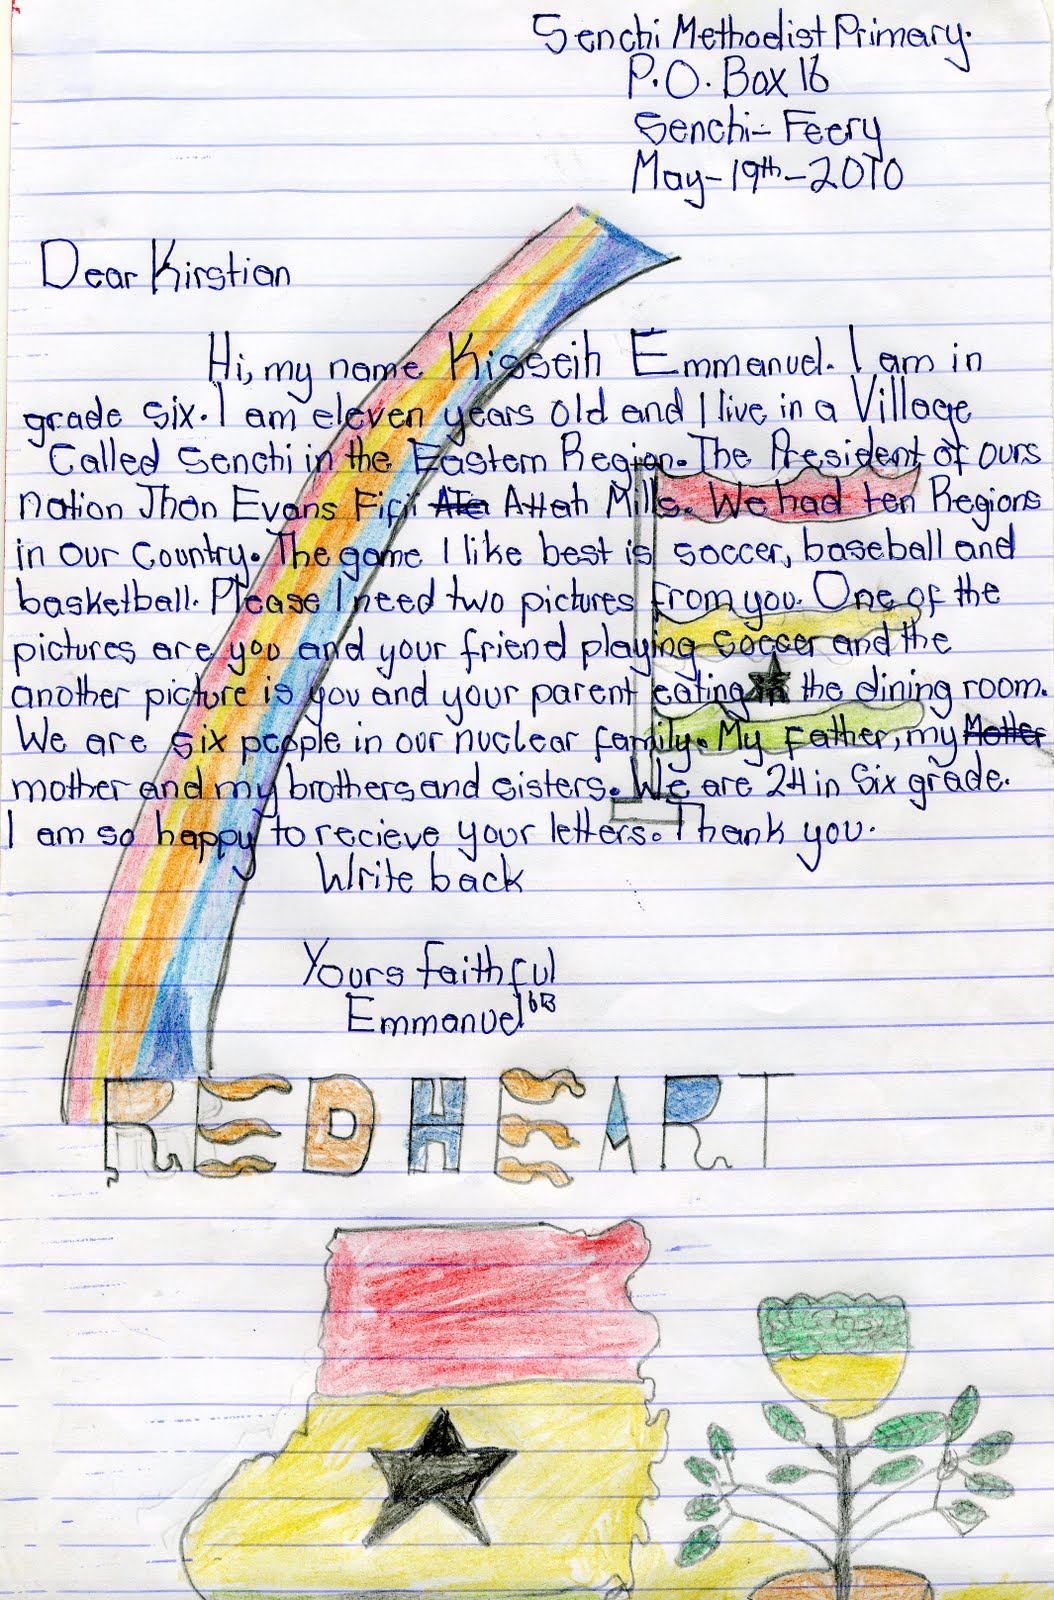 Senchi Methodist Primary.
P.O. Box 16
Senchi- Feery
May-19th-2010
Dear Kirstian
Hi, my name Kisseih Emmanuel. I am in
grade six. I am eleven years old and I live in a Village
Called Senchi in the Eastern Region. The President of ours
nation Jhon Evans Fifii Ata Attah Mills. We had ten Regions
in our Country. The game I like best is soccer, baseball and
basketball. Please I need two pictures from you. One of the
pictures are you and your friend playing soccer and the
another picture is you and your parent eating in the dining room.
We are six people in our nuclear family. My Father, my Mother
mother and my brothers and sisters. We are 24 in Six grade.
I am so happy to recieve your letters. Thank you.
Write back
Yours faithful
Emmanuel 6B
REDHEART